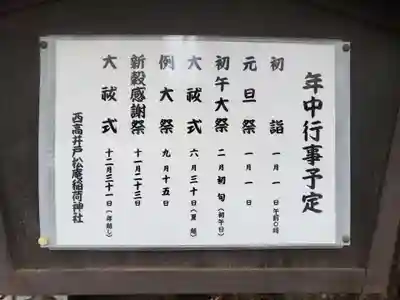 年中行事予定
初詣 一月一日 午前〇時
元旦祭 一月一日
初午大祭 二月初旬(初午日)
大祓式 六月三十日(夏越)
例大祭 九月十五日
新穀感謝祭 十一月二十三日
大祓式 十二月三十一日(年越し)
西高井戸松庵稲荷神社